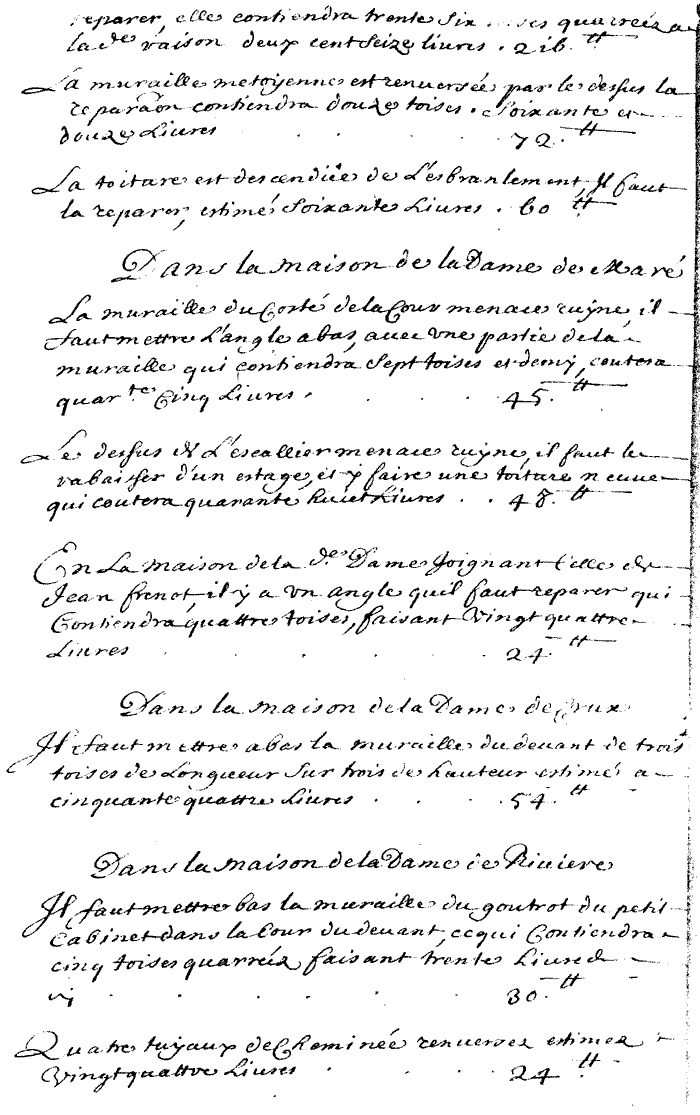 reparer, elle contiendra trente six quarreéz a
la de raison deux cent seize livres . 216 tt
La muraille metoyenne est renversée par le dessus la
reparaon contiendra douze toises . soixante et
douze Livres . . 72. tt
La toiture est descendüe de L'esbranlement, Il faut
la reparer, estimé soixante Livres . 60 tt
Dans la maison de la Dame de Maré
La muraille du Costé de la Cour menace ruyne, il
faut mettre L'angle a bas, avec une partie de la
muraille qui contiendra sept toises et demy, coutera
quarte Cinq Livres . . . 45. tt
Le dessus de L'escallier menace ruyne, il faut le
rabaisser d'un estage, et y faire une toiture neuve
qui coutera quarante huict Livres . . 48. tt
En La maison de la de Dame Joignant Celle de
Jean frenot, il y a vn angle quil faut reparer qui
Contiendra quattre toises, faisant Vingt quattre
Livres . . . 24. tt
Dans la maison de la Dame de Crux
Il faut mettre a bas la muraille du devant de trois
toises de Longueur sur trois de hauteur estimé a
cinquante quattre Livres . . . 54. tt
Dans la maison de la Dame de Riviere
Il faut mettre bas la muraille du goutrot du petit
Cabinet dans la Cour du devant, ce qui Contiendra
cinq toises quarreéz faisant trente Livres
. . . 30. tt
Quatre tuyaux de Cheminée renversez estimez
Vingt quattre Livres . . . 24 tt